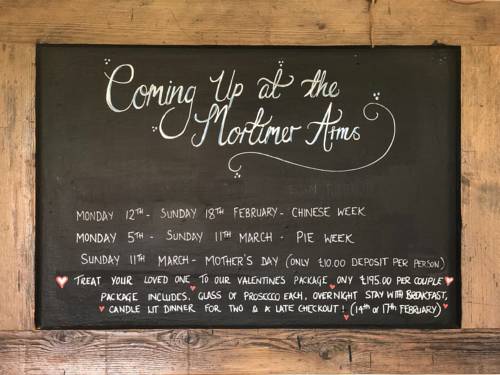 Coming Up at the
Mortimer Arms
MONDAY 12TH - SUNDAY 18TH FEBRUARY - CHINESE WEEK
MONDAY 5TH - SUNDAY 11TH MARCH - PIE WEEK
SUNDAY 11TH MARCH - MOTHER'S DAY (ONLY £10.00 DEPOSIT PER PERSON)
TREAT YOUR LOVED ONE TO OUR VALENTINES PACKAGE ONY £195.00 PER COUPLE
PACKAGE INCLUDES. GLASS OF PROSECCO EACH, OVERNIGHT STAY WITH BREAKFAST,
CANDLE LIT DINNER FOR TWO & A LATE CHECKOUT! (14TH or 17TH FEBRUARY)